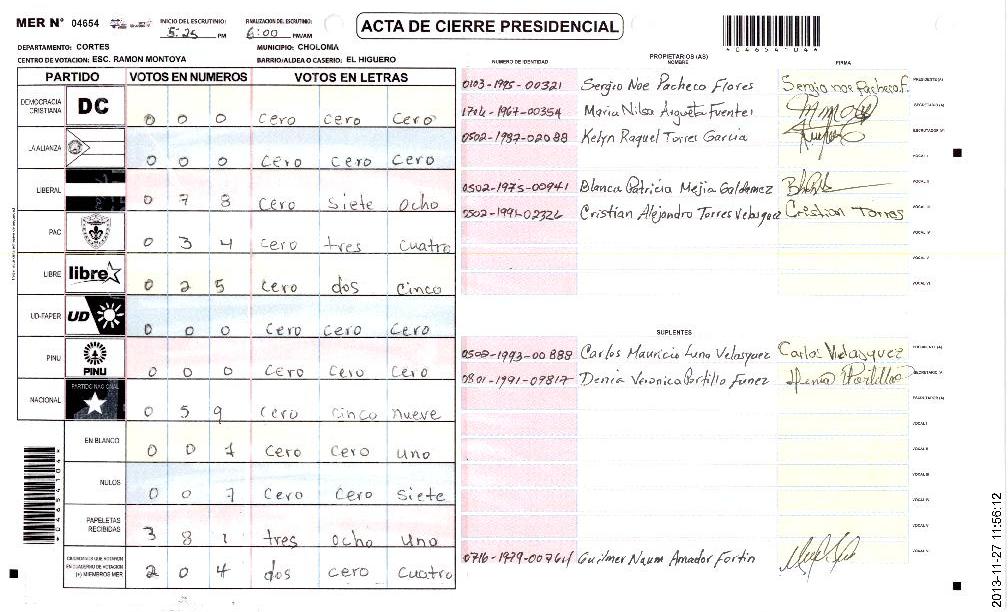 MER N° 04654
INICIO DEL ESCRUTINIO: 5:25 PM
FINALIZACION DEL ESCRUTINIO: 6:00 PM/AM
ACTA DE CIERRE PRESIDENCIAL
DEPARTAMENTO: CORTES
MUNICIPIO: CHOLOMA
CENTRO DE VOTACION: ESC. RAMON MONTOYA
BARRIO/ALDEA O CASERIO: EL HIGUERO
PARTIDO VOTOS EN NUMEROS VOTOS EN LETRAS
DEMOCRACIA CRISTIANA DC 0 0 0 Cero Cero Cero
LA ALIANZA 0 0 0 Cero Cero Cero
LIBERAL 0 7 8 Cero Siete Ocho
PAC 0 3 4 Cero tres Cuatro
LIBRE libre 0 2 5 Cero dos Cinco
UD-FAPER UD 0 0 0 Cero Cero Cero
PINU PINU 0 0 0 Cero Cero Cero
NACIONAL PARTIDO NACIONAL 0 5 9 Cero Cinco nueve
EN BLANCO 0 0 1 Cero Cero uno
NULOS 0 0 7 Cero Cero Siete
PAPELETAS RECIBIDAS 3 8 1 tres ocho Uno
CIUDADANOS QUE VOTARON EN CUADERNO DE VOTACION (+) MIEMBROS MER 2 0 4 dos cero Cuatro
PROPIETARIOS (AS)
NUMERO DE IDENTIDAD NOMBRE FIRMA
0103-1995-00321 Sergio Noe Pacheco Flores Sergio noe Pacheco F. PRESIDENTE(A)
1706-1967-00354 Maria Nilsa Argueta Fuentes SECRETARIO (A)
0502-1987-02088 Kelyn Raquel Torres Garcia ESCRUTADOR (A)
VOCAL I
0502-1975-00941 Blanca Patricia Mejia Galdamez VOCAL II
0502-1991-02326 Cristian Alejandro Torres Velasquez Cristian Torres VOCAL III
VOCAL IV
VOCAL V
VOCAL VI
SUPLENTES
0502-1993-00888 Carlos Mauricio Luna Velasquez Carlos Velasquez PRESIDENTE (A)
0801-1991-09817 Denia Veronica Portillo Funez Denia Portillo SECRETARIO (A)
ESCRUTADOR (A)
VOCAL I
VOCAL II
VOCAL III
VOCAL IV
VOCAL V
0716-1979-00761 Guilmer Naum Amador Fortin VOCAL VI
2013-11-27 11:56:12